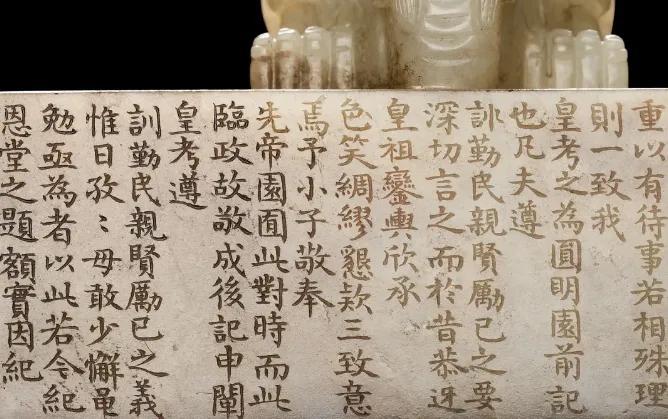 重以有待事若相殊理
則一致我
皇考之為圓明園前記
也凡夫遵
訓勤民親賢勵己之要
深切言之而於昔恭迓
皇祖鑾輿欣承
色笑綢繆懇欵三致意
焉予小子敬奉
先帝園囿此對時而此
臨政故敬成後記申闡
皇考遵
訓勤民親賢勵己之義
惟日孜〻毋敢少懈黽
勉亟為者以此若今紀
恩堂之題額實因紀